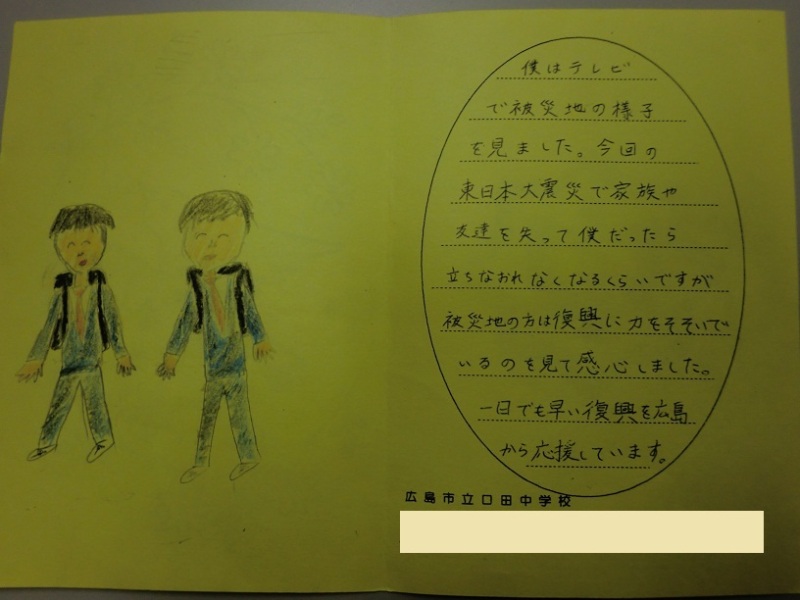 僕はテレビ
で被災地の様子
を見ました。今回の
東日本大震災で家族や
友達を失って僕だったら
立ちなおれなくなるくらいですが
被災地の方は復興に力をそそいで
いるのを見て感心しました。
一日でも早い復興を広島
から応援しています。
広島市立口田中学校